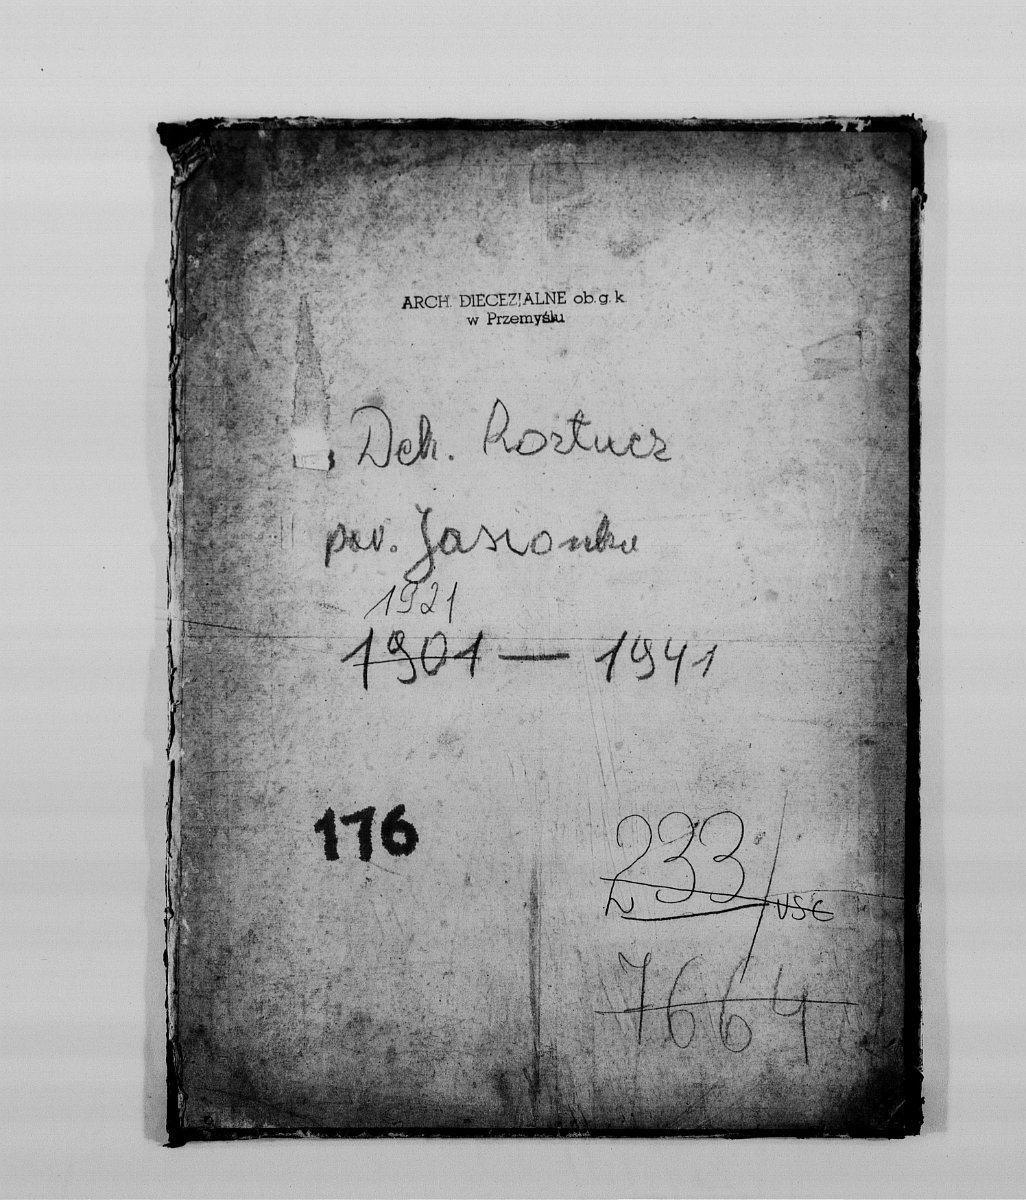 ARCH. DIECEZJALNE ob.g.k.
w Przemyślu
Dek. Roztucz
par. Jasionka
1921
1901 — 1941
176
233/USC
7664